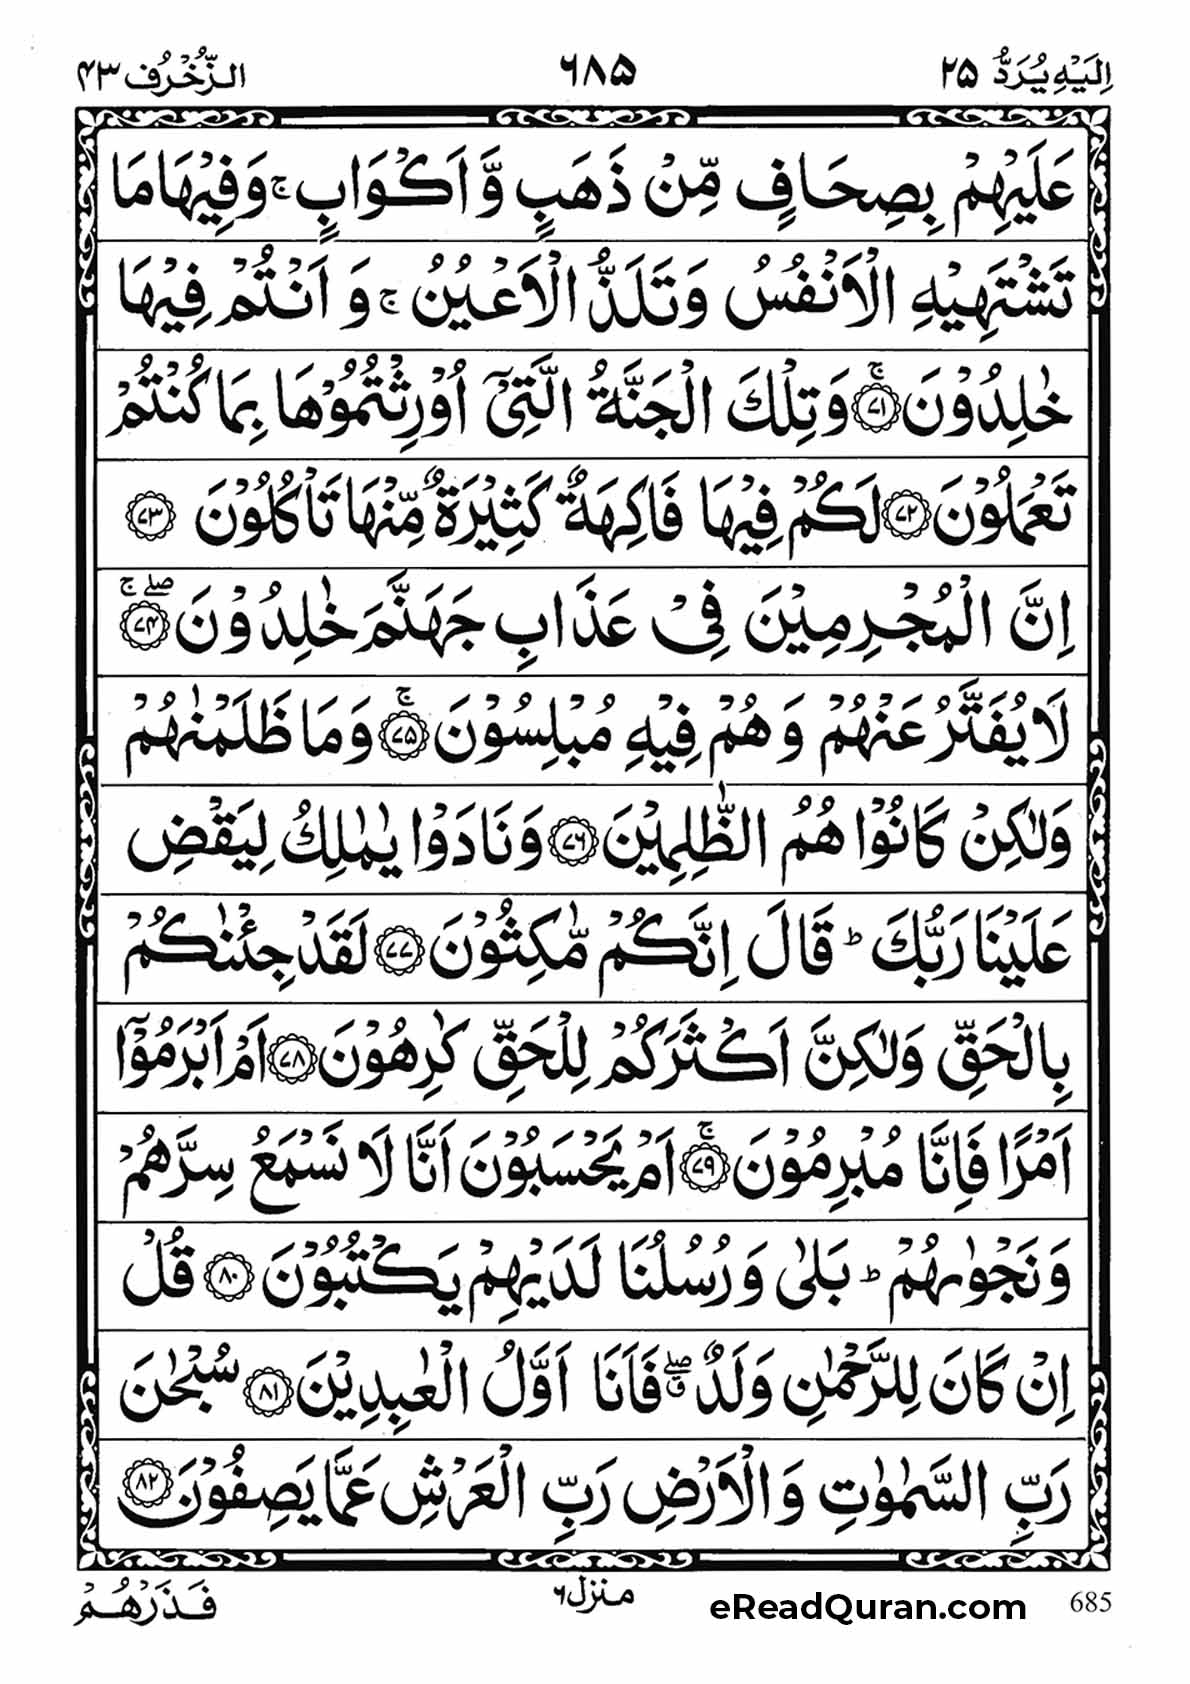 اِلَيْهِ يُرَدُّ ٢٥ ٦٨٥ الزُّخْرُف ٤٣
عَلَيْهِمْ بِصِحَافٍ مِّنْ ذَهَبٍ وَّاَكْوَابٍ ۚ وَفِيْهَا مَا
تَشْتَهِيْهِ الْاَنْفُسُ وَتَلَذُّ الْاَعْيُنُ ۚ وَاَنْتُمْ فِيْهَا
خٰلِدُوْنَ ۚ﴿٧١﴾ وَتِلْكَ الْجَنَّةُ الَّتِيْۤ اُوْرِثْتُمُوْهَا بِمَا كُنْتُمْ
تَعْمَلُوْنَ ﴿٧٢﴾ لَكُمْ فِيْهَا فَاكِهَةٌ كَثِيْرَةٌ مِّنْهَا تَاْكُلُوْنَ ﴿٧٣﴾
اِنَّ الْمُجْرِمِيْنَ فِيْ عَذَابِ جَهَنَّمَ خٰلِدُوْنَ ۖۚ﴿٧٤﴾
لَا يُفَتَّرُ عَنْهُمْ وَهُمْ فِيْهِ مُبْلِسُوْنَ ۚ﴿٧٥﴾ وَمَا ظَلَمْنٰهُمْ
وَلٰكِنْ كَانُوْا هُمُ الظّٰلِمِيْنَ ﴿٧٦﴾ وَنَادَوْا يٰمٰلِكُ لِيَقْضِ
عَلَيْنَا رَبُّكَ ؕ قَالَ اِنَّكُمْ مّٰكِثُوْنَ ﴿٧٧﴾ لَقَدْ جِئْنٰكُمْ
بِالْحَقِّ وَلٰكِنَّ اَكْثَرَكُمْ لِلْحَقِّ كٰرِهُوْنَ ﴿٧٨﴾ اَمْ اَبْرَمُوْۤا
اَمْرًا فَاِنَّا مُبْرِمُوْنَ ۚ﴿٧٩﴾ اَمْ يَحْسَبُوْنَ اَنَّا لَا نَسْمَعُ سِرَّهُمْ
وَنَجْوٰىهُمْ ؕ بَلٰى وَرُسُلُنَا لَدَيْهِمْ يَكْتُبُوْنَ ﴿٨٠﴾ قُلْ
اِنْ كَانَ لِلرَّحْمٰنِ وَلَدٌ ۖۗ فَاَنَا اَوَّلُ الْعٰبِدِيْنَ ﴿٨١﴾ سُبْحٰنَ
رَبِّ السَّمٰوٰتِ وَالْاَرْضِ رَبِّ الْعَرْشِ عَمَّا يَصِفُوْنَ ﴿٨٢﴾
فَذَرْهُمْ منزل ٦ eReadQuran.com 685